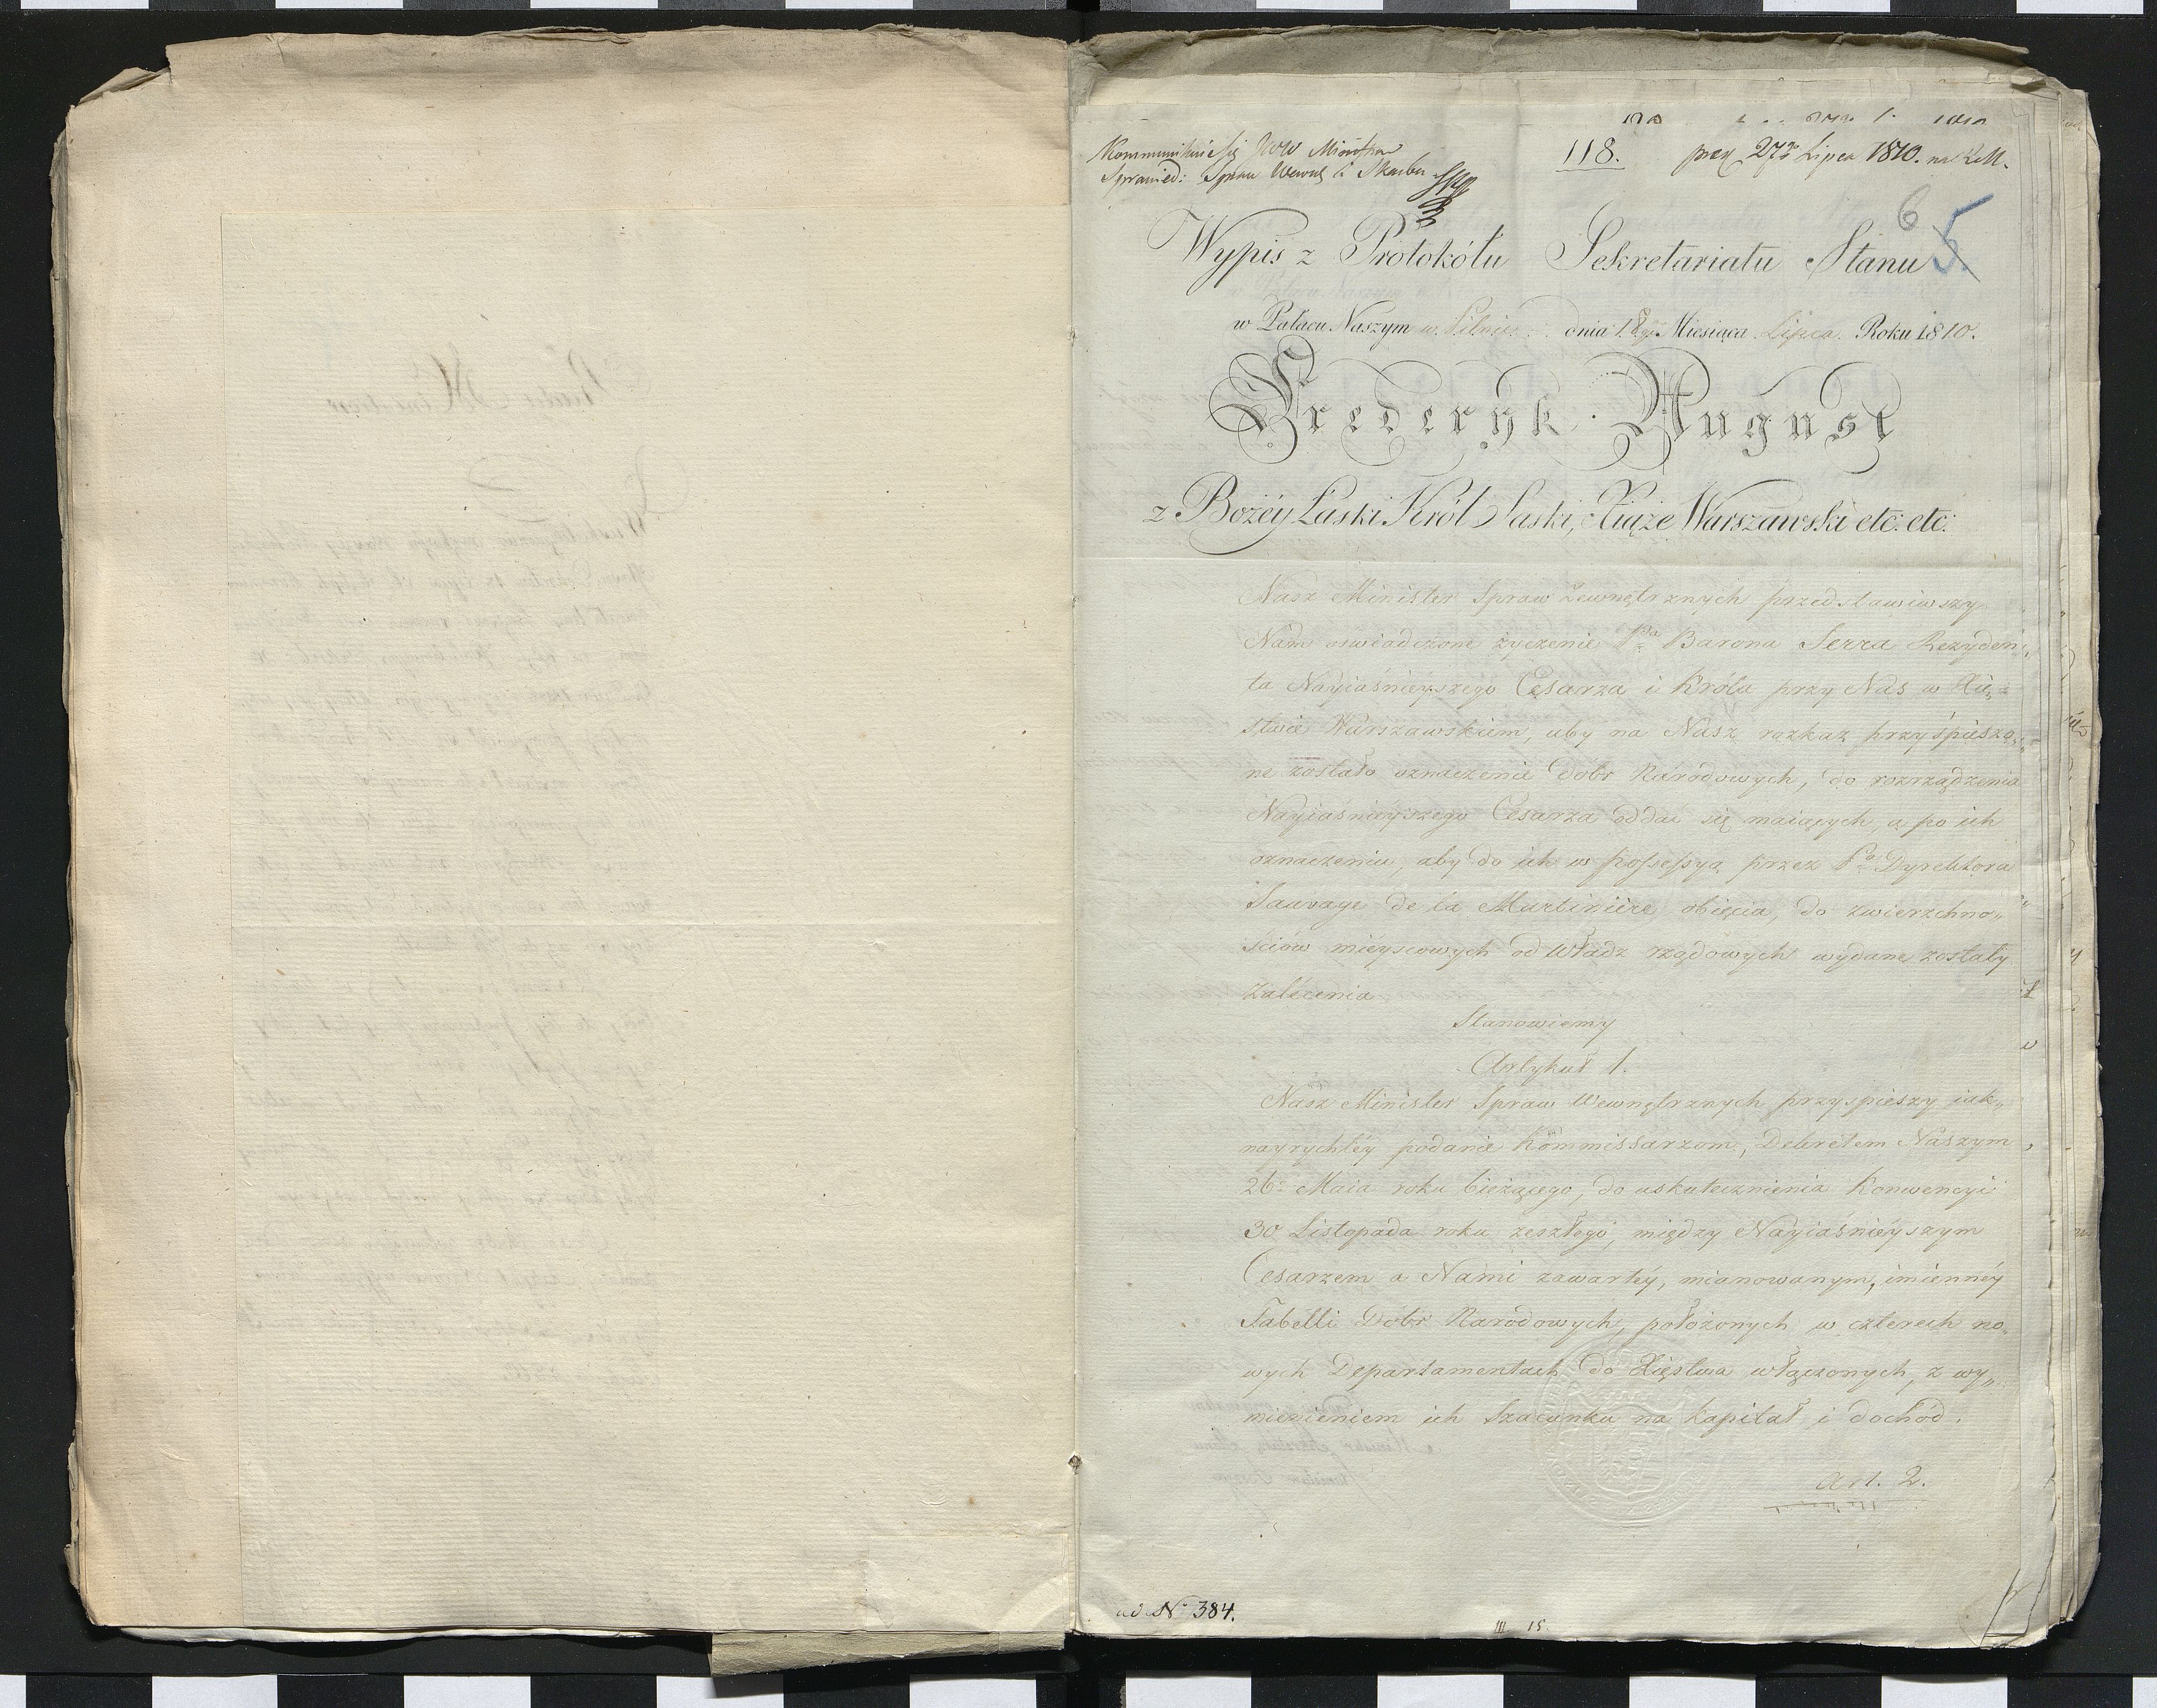 Kommunikuie się JWW Ministrom
Sprawied: Spraw Wewnę i Skarbu
118.
prez 27go Lipca 1810. na R.M.
6 5.
Wypis z Protokółu Sekretariatu Stanu
w Pałacu Naszym w Pilnitz dnia 18go Miesiąca Lipca Roku 1810.
Fryderyk August
z Bożéy Łaski Król Saski, Xiąże Warszawski etc: etc:
Nasz Minister Spraw Zewnętrznych przedstawiwszy
Nam oświadczone życzenie Pna Barona Serra Rezyden„
ta Nayiaśnieyszego Cesarza i Króla przy Nas w Xię=
stwie Warszawskiem, aby na Nasz rozkaz przyśpieszo„
ne zostało oznaczenie dóbr Narodowych, do rozrządzenia
Nayiaśnieyszego Cesarza oddać się maiących, a po ich
oznaczeniu, aby do ich w possessyą przez Pa Dyrektora
Sauvage de la Martinière obięcia, do zwierzchno„
ściów mieyscowych od Władz rządowych wydane zostały
zalecenia
Stanowiemy
Artykuł 1.
Nasz Minister Spraw Wewnętrznych przyspieszy iak„
nayrychléy podanie Kommissarzom, Dekretem Naszym
26o Maia roku bieżącego, do uskutecznienia Konwencyi
30 Listopada roku zeszłego, między Nayiaśnieyszym
Cesarzem a Nami zawartéy, mianowanym, imiennéy
Tabelli Dóbr Narodowych, położonych w czterech no„
wych Departamentach do Xięstwa włączonych, z wy„
mienieniem ich Szacunku na kapitał i dochód.
Art. 2.
ad No 384.
III 15.